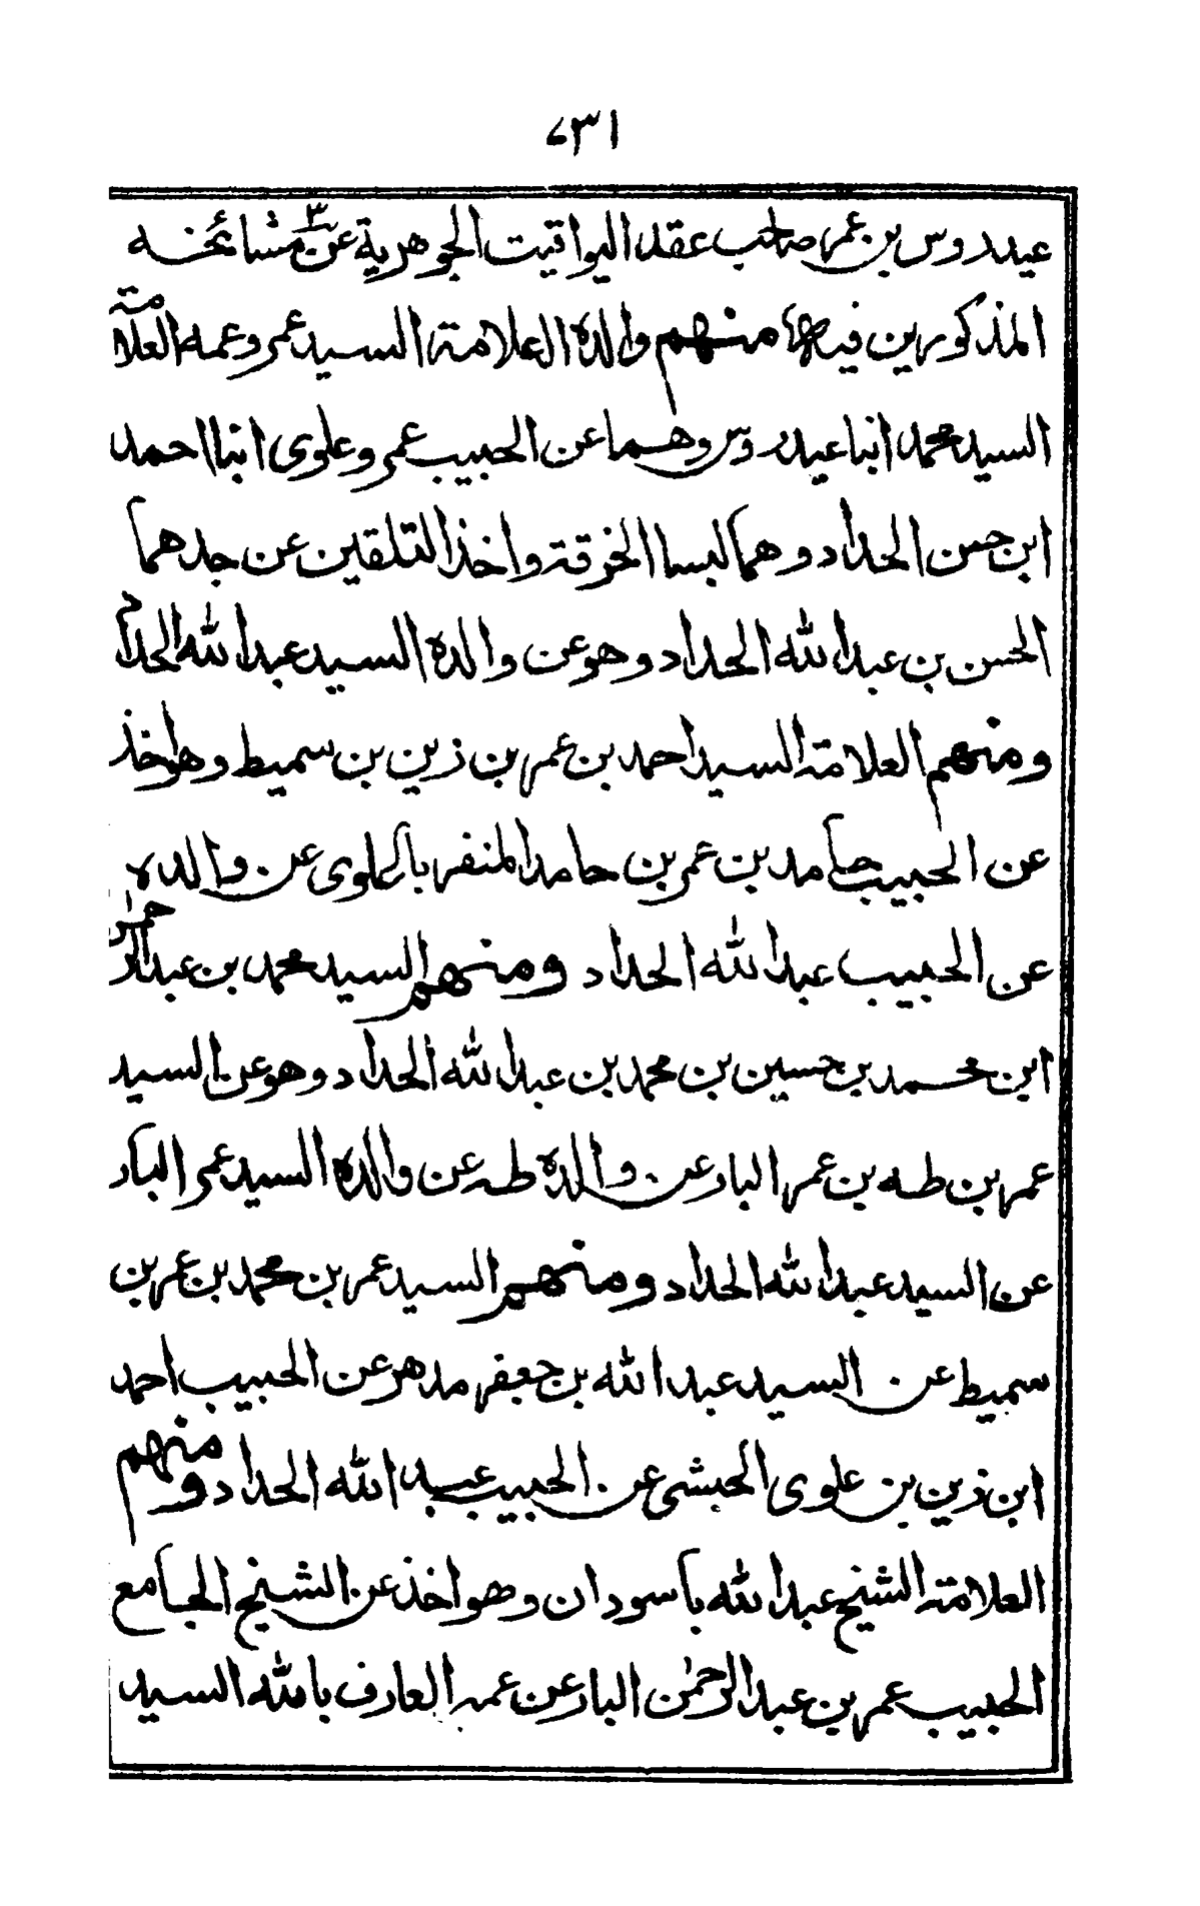 ٧٣١
عيدروس بن عمر صاحب عقد اليواقيت الجوهرية عن ٣ مشائخنه
المذكورين فيها منهم والده العلامة السيد عمر وعمه العلامة
السيد محمد ابنا عيدروس وهما عن الحبيب عمر وعلوى ابنا احمد
ابن حسن الحداد وهما لبسا الخرقة واخذ التلقين عن جدهما
الحسن بن عبد الله الحداد وهو عن والده السيد عبد الله الحداد
ومنهم العلامة السيد احمد بن عمر بن زين بن سميط وهو اخذ
عن الحبيب حامد بن عمر بن حامد المنفر باعلوى عن والده
عن الحبيب عبد الله الحداد ومنهم السيد محمد بن عبد الرحمن
ابن محمد بن حسين بن محمد بن عبد الله الحداد وهو عن السيد
عمر بن طه بن عمر البار عن والده طه عن والده السيد عمر البار
عن السيد عبد الله الحداد ومنهم السيد عمر بن محمد بن عمر بن
سميط عن السيد عبد الله بن جعفر مدهر عن الحبيب احمد
ابن زين بن علوى الحبشى عن الحبيب عبد الله الحداد ومنهم
العلامة الشيخ عبد الله باسودان وهو اخذ عن الشيخ الجامع
الحبيب عمر بن عبد الرحمن البار عن عمه العارف بالله السيد